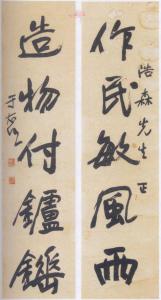 浩森先生正
作民敏風雨
造物付鑪錘
于右任